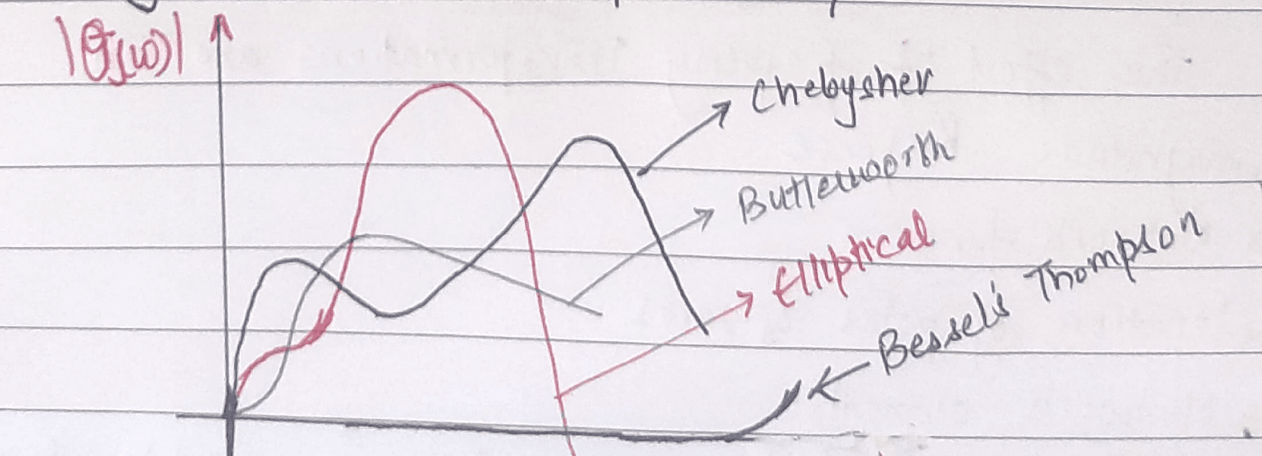 |θ(jω)|
Chebyshev
Butterworth
Elliptical
Bessel's Thompson